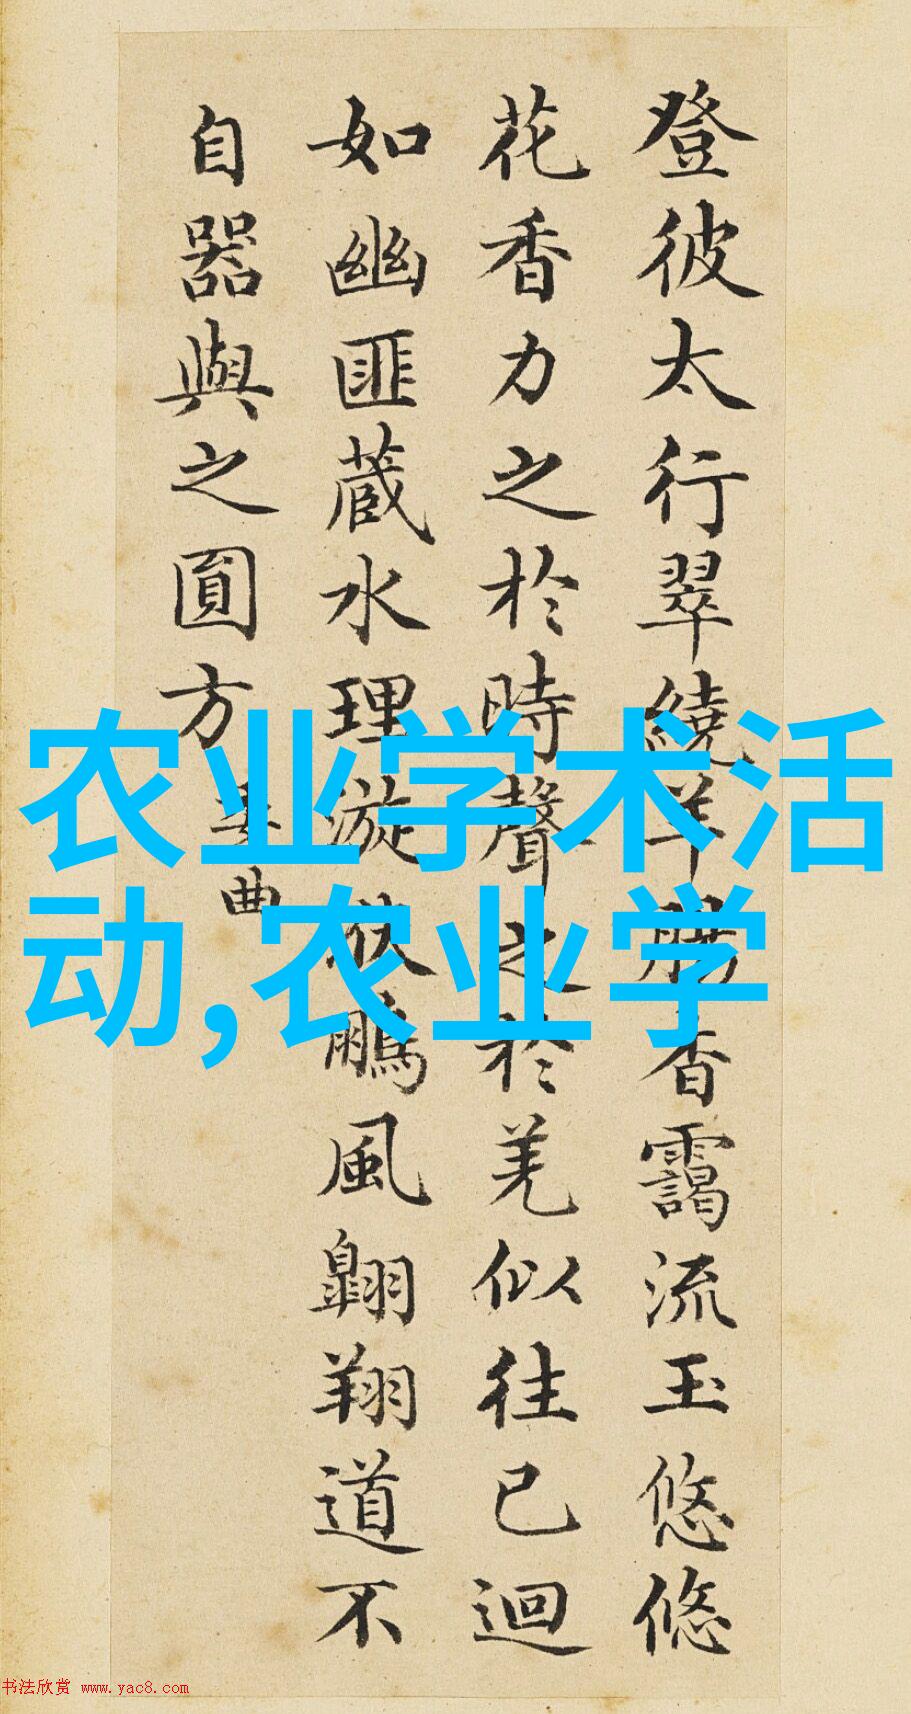 登彼太行翠繞羊腸香靄流玉悠悠
花香力之於時聲之於羌似往已迴
如幽匪藏水理漩洑鵬風翺翔道不
自器與之圓方
委曲
农业学术活
动,农业学
书法欣赏 www.yac8.com